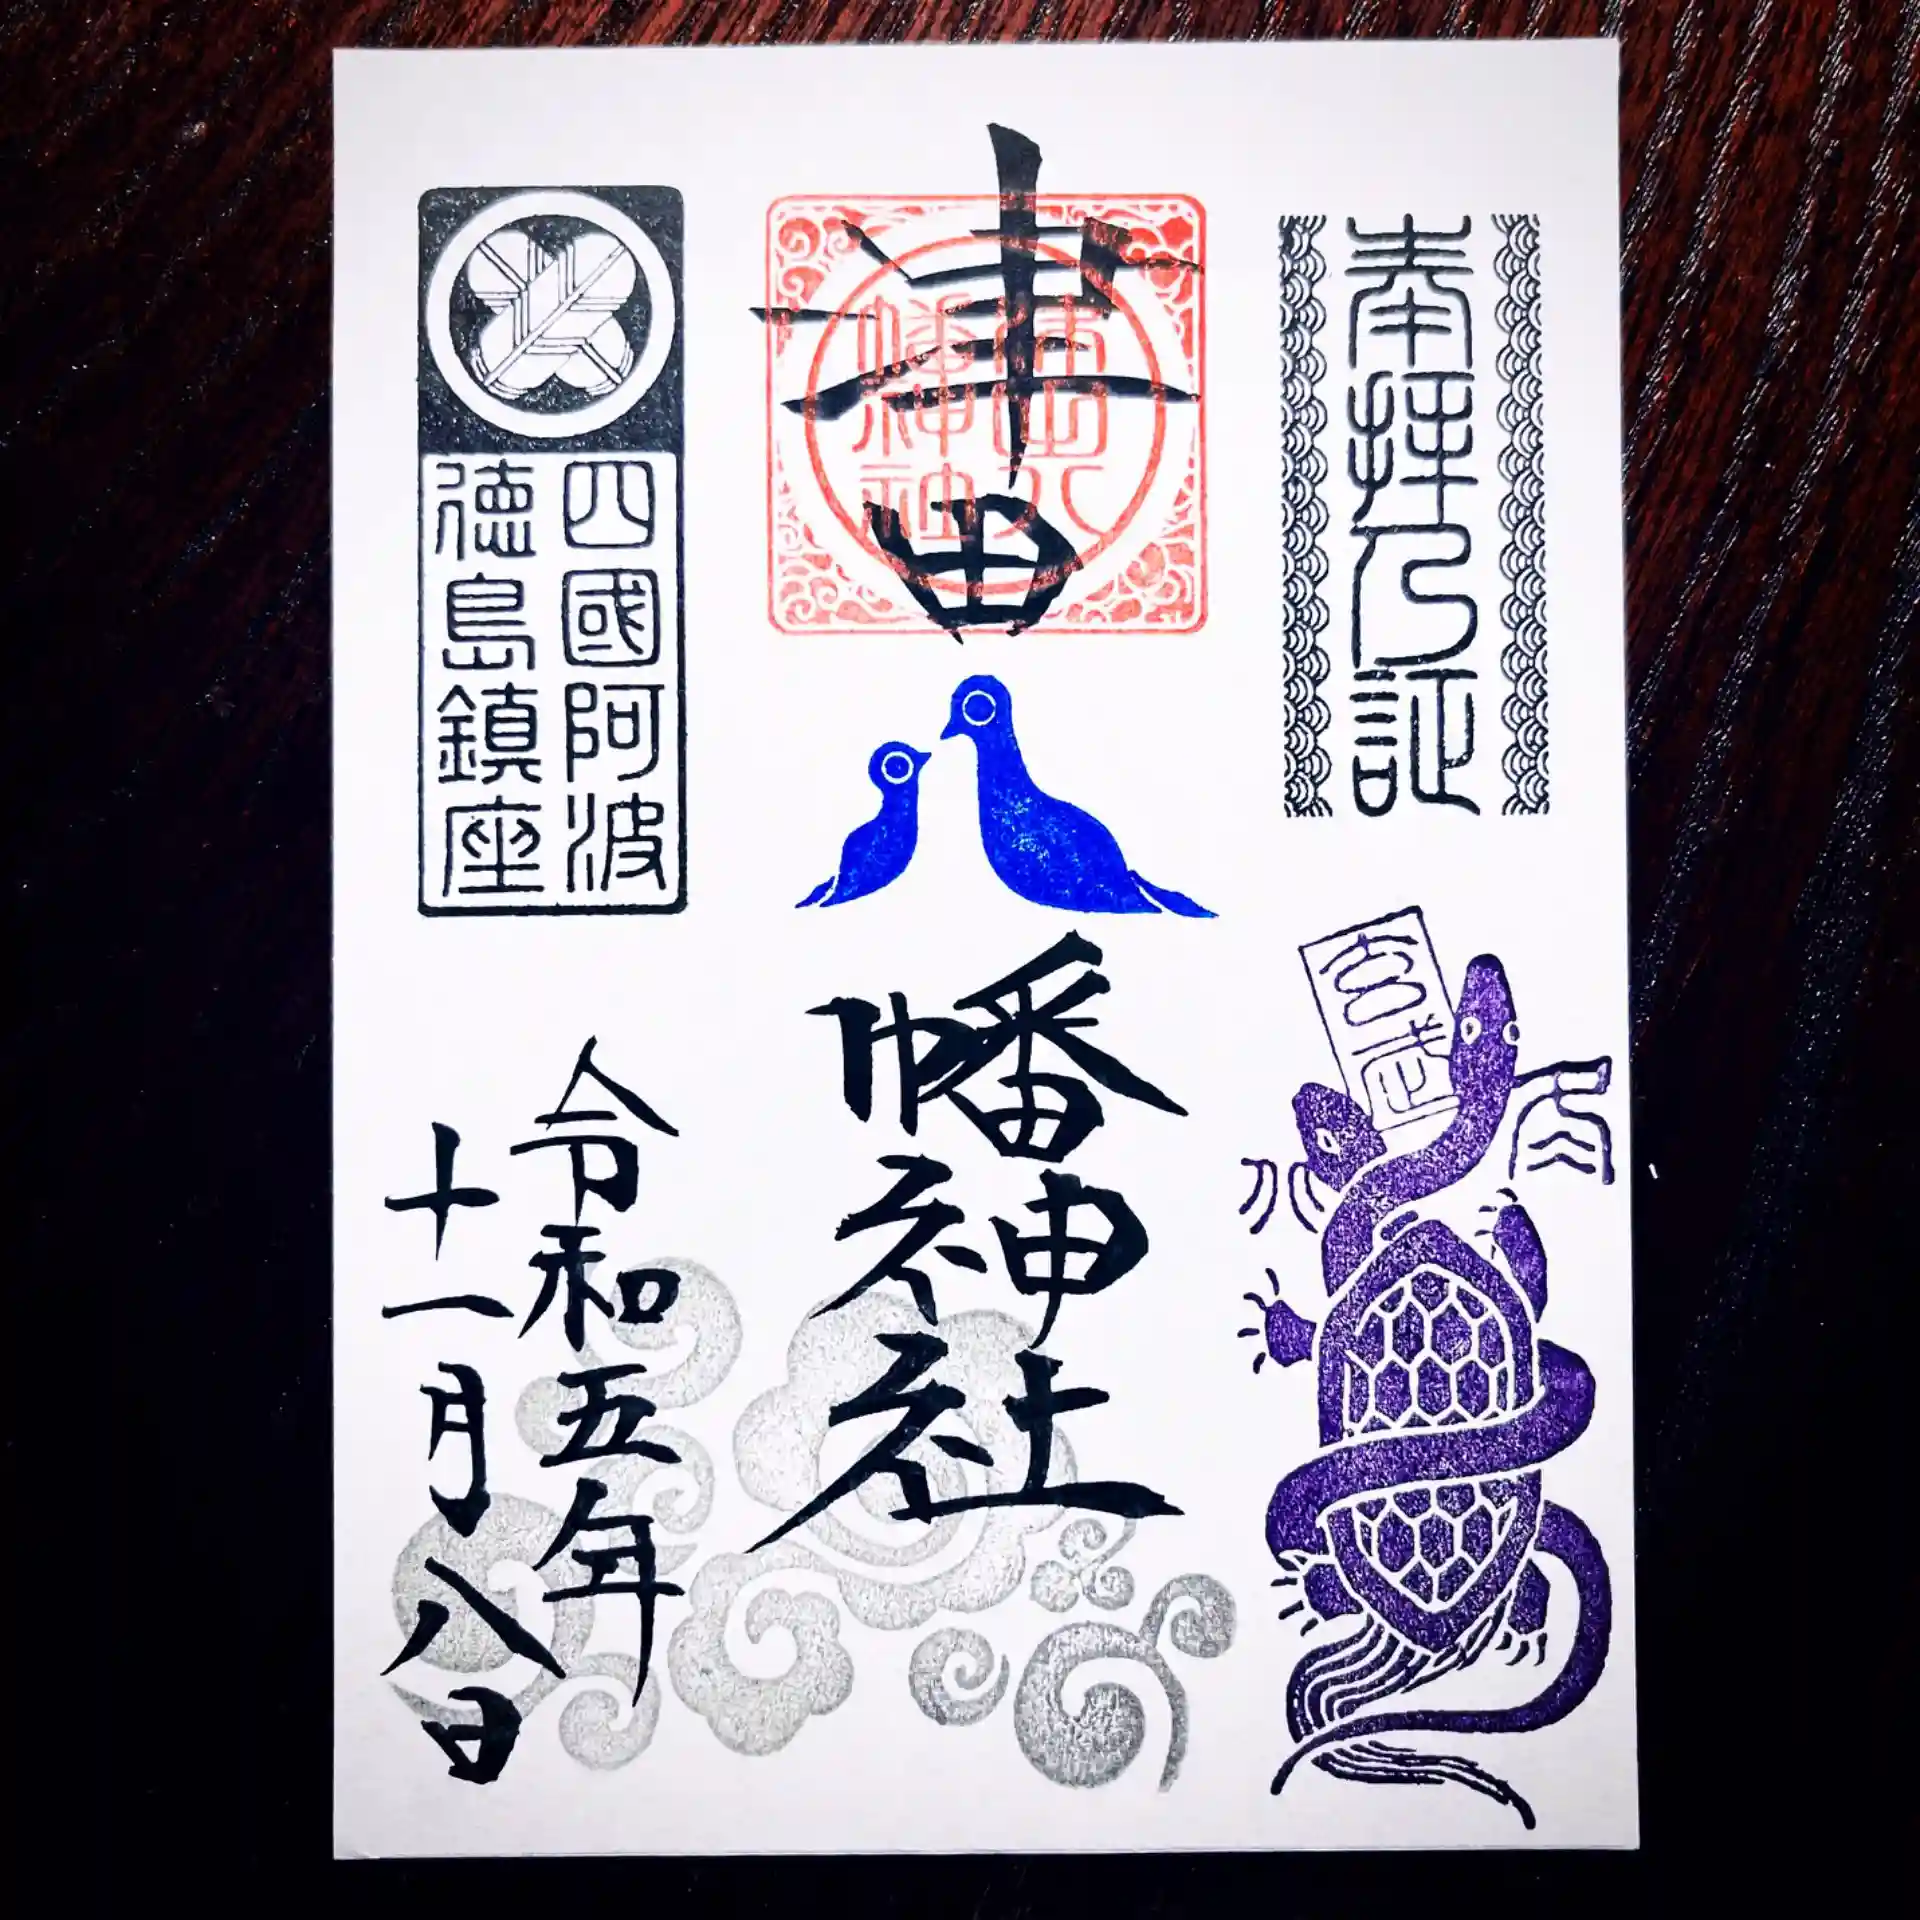 奉拝之証
玄武
冬
水
津田
幡神社
津田八
幡神社
四國阿波
徳島鎮座
令和五年
十一月八日